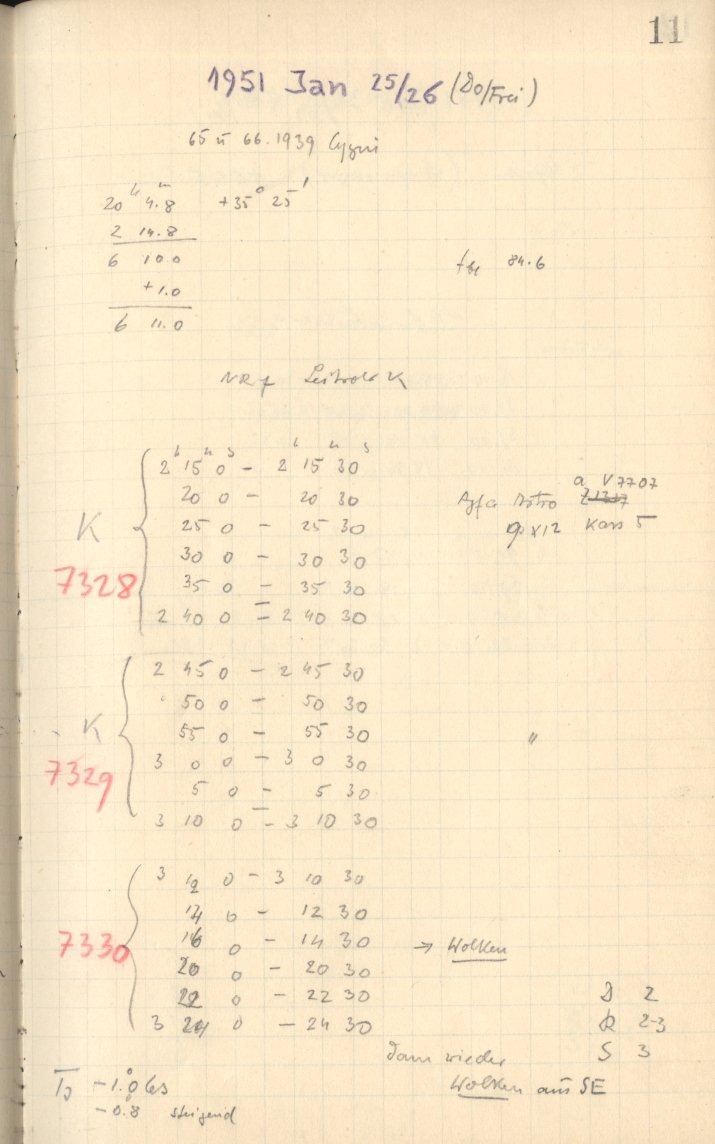 11
1951 Jan 25/26 (Do/Frei)
65 u 66.1939 Cygni
20h 4m.8 +35° 25'
2 14.8
6 10 0
+1.0
6 11.0
84.6
K
7328
2h 15m 0s - 2h 15m 30s
20 0 - 20 30
25 0 - 25 30
30 0 - 30 30
35 0 - 35 30
2 40 0 - 2 40 30
Agfa Astro a V 7707
9x12 Kass 5
K
7329
2 45 0 - 2 45 30
50 0 - 50 30
55 0 - 55 30
3 0 0 - 3 0 30
5 0 - 5 30
3 10 0 - 3 10 30
"
7330
3 12 0 - 3 10 30
14 0 - 12 30
16 0 - 14 30 → Wolken
20 0 - 20 30
22 0 - 22 30
3 24 0 - 24 30
D 2
R 2-3
S 3
dann wieder
Wolken aus SE
-1.0 bis
-0.8 steigend